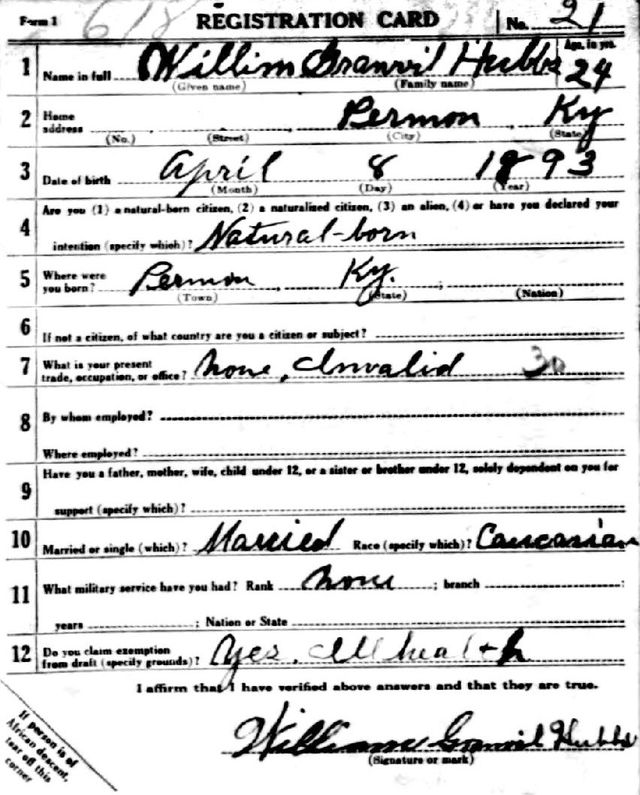 Form 1 618 REGISTRATION CARD No. 21
1 Name in full Willim Granvil Hubbs Age, in yrs. 24
(Given name) (Family name)
2 Home address Permon Ky
(No.) (Street) (City) (State)
3 Date of birth April 8 1893
(Month) (Day) (Year)
4 Are you (1) a natural-born citizen, (2) a naturalized citizen, (3) an alien, (4) or have you declared your
intention (specify which)? Natural-born
5 Where were you born? Permon Ky.
(Town) (State) (Nation)
6 If not a citizen, of what country are you a citizen or subject?
7 What is your present trade, occupation, or office? None, Invalid 30
8 By whom employed?
Where employed?
9 Have you a father, mother, wife, child under 12, or a sister or brother under 12, solely dependent on you for
support (specify which)?
10 Married or single (which)? Married Race (specify which)? Caucasian
11 What military service have you had? Rank none ; branch ;
years ; Nation or State
12 Do you claim exemption from draft (specify grounds)? Yes. Ill health
I affirm that I have verified above answers and that they are true.
William Granvil Hubbs
(Signature or mark)
If person is of
African descent,
tear off this
corner